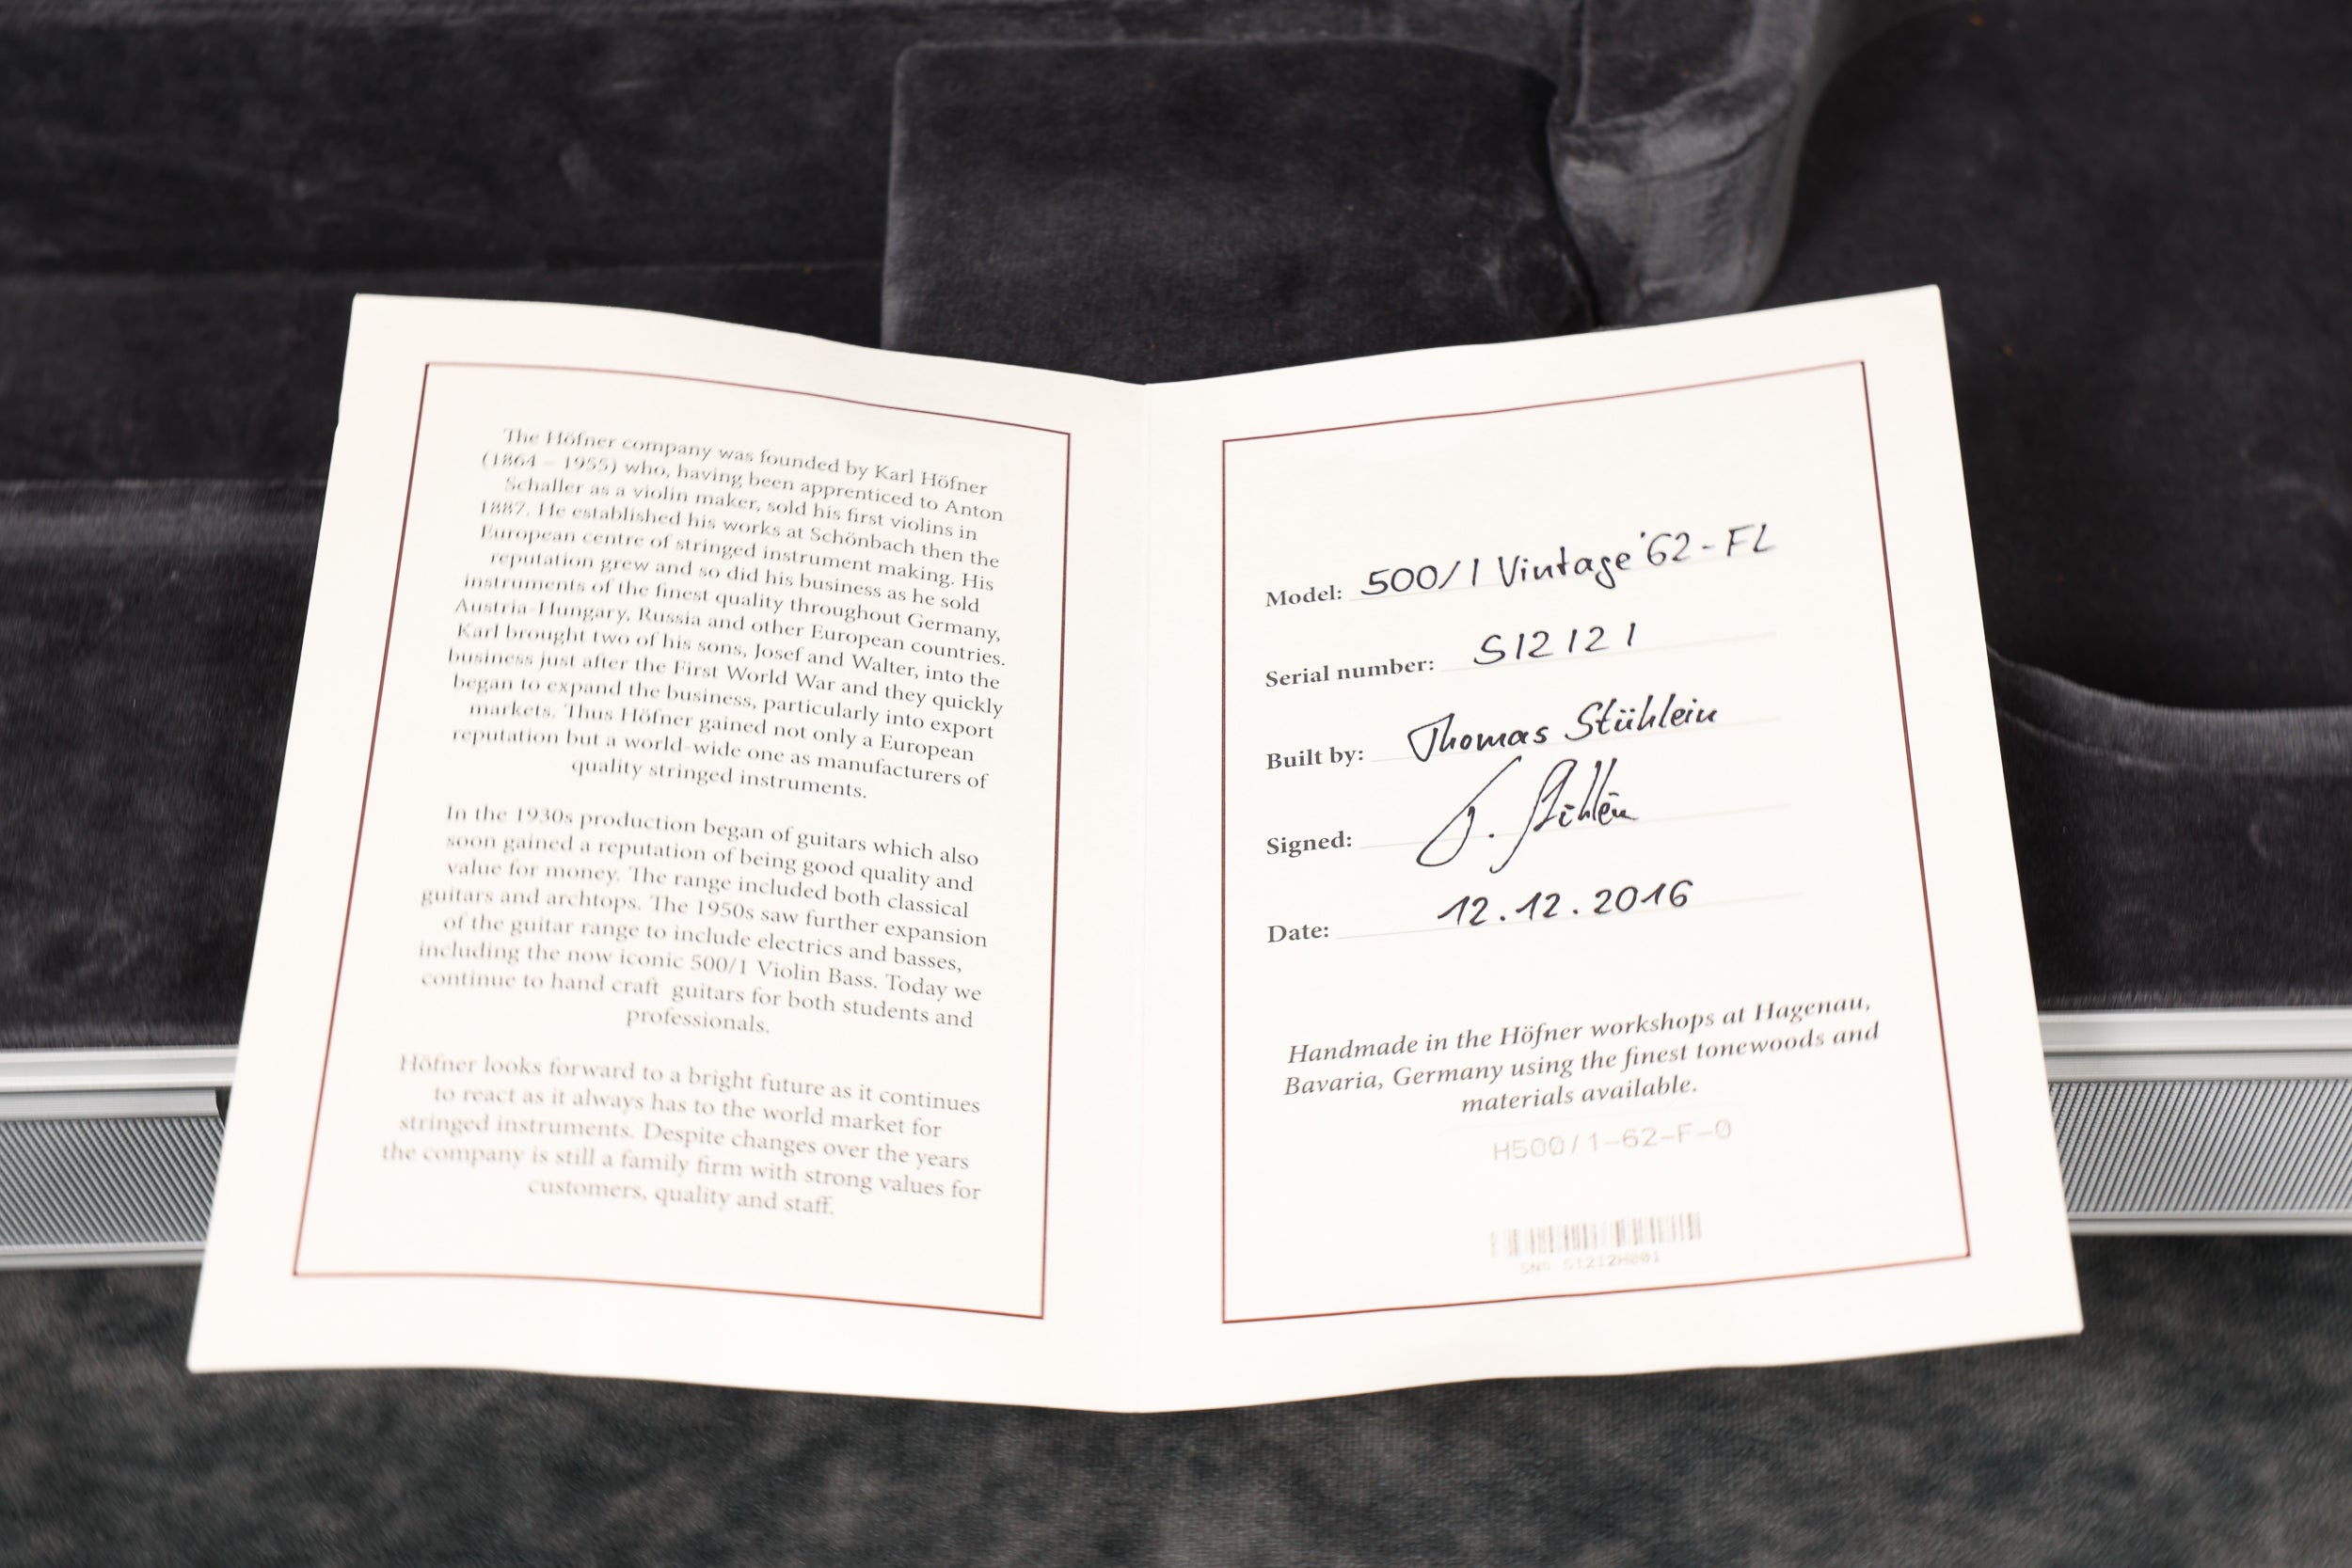 The Höfner company was founded by Karl Höfner
(1864 – 1955) who, having been apprenticed to Anton
Schaller as a violin maker, sold his first violins in
1887. He established his works at Schönbach then the
European centre of stringed instrument making. His
reputation grew and so did his business as he sold
instruments of the finest quality throughout Germany,
Austria-Hungary, Russia and other European countries.
Karl brought two of his sons, Josef and Walter, into the
business just after the First World War and they quickly
began to expand the business, particularly into export
markets. Thus Höfner gained not only a European
reputation but a world-wide one as manufacturers of
quality stringed instruments.
In the 1930s production began of guitars which also
soon gained a reputation of being good quality and
value for money. The range included both classical
guitars and archtops. The 1950s saw further expansion
of the guitar range to include electrics and basses,
including the now iconic 500/1 Violin Bass. Today we
continue to hand craft guitars for both students and
professionals.
Höfner looks forward to a bright future as it continues
to react as it always has to the world market for
stringed instruments. Despite changes over the years
the company is still a family firm with strong values for
customers, quality and staff.
Model: 500/1 Vintage '62-FL
Serial number: S12121
Built by: Thomas Stühlein
Signed: T. Stühlein
Date: 12.12.2016
Handmade in the Höfner workshops at Hagenau,
Bavaria, Germany using the finest tonewoods and
materials available.
H500/1-62-F-0